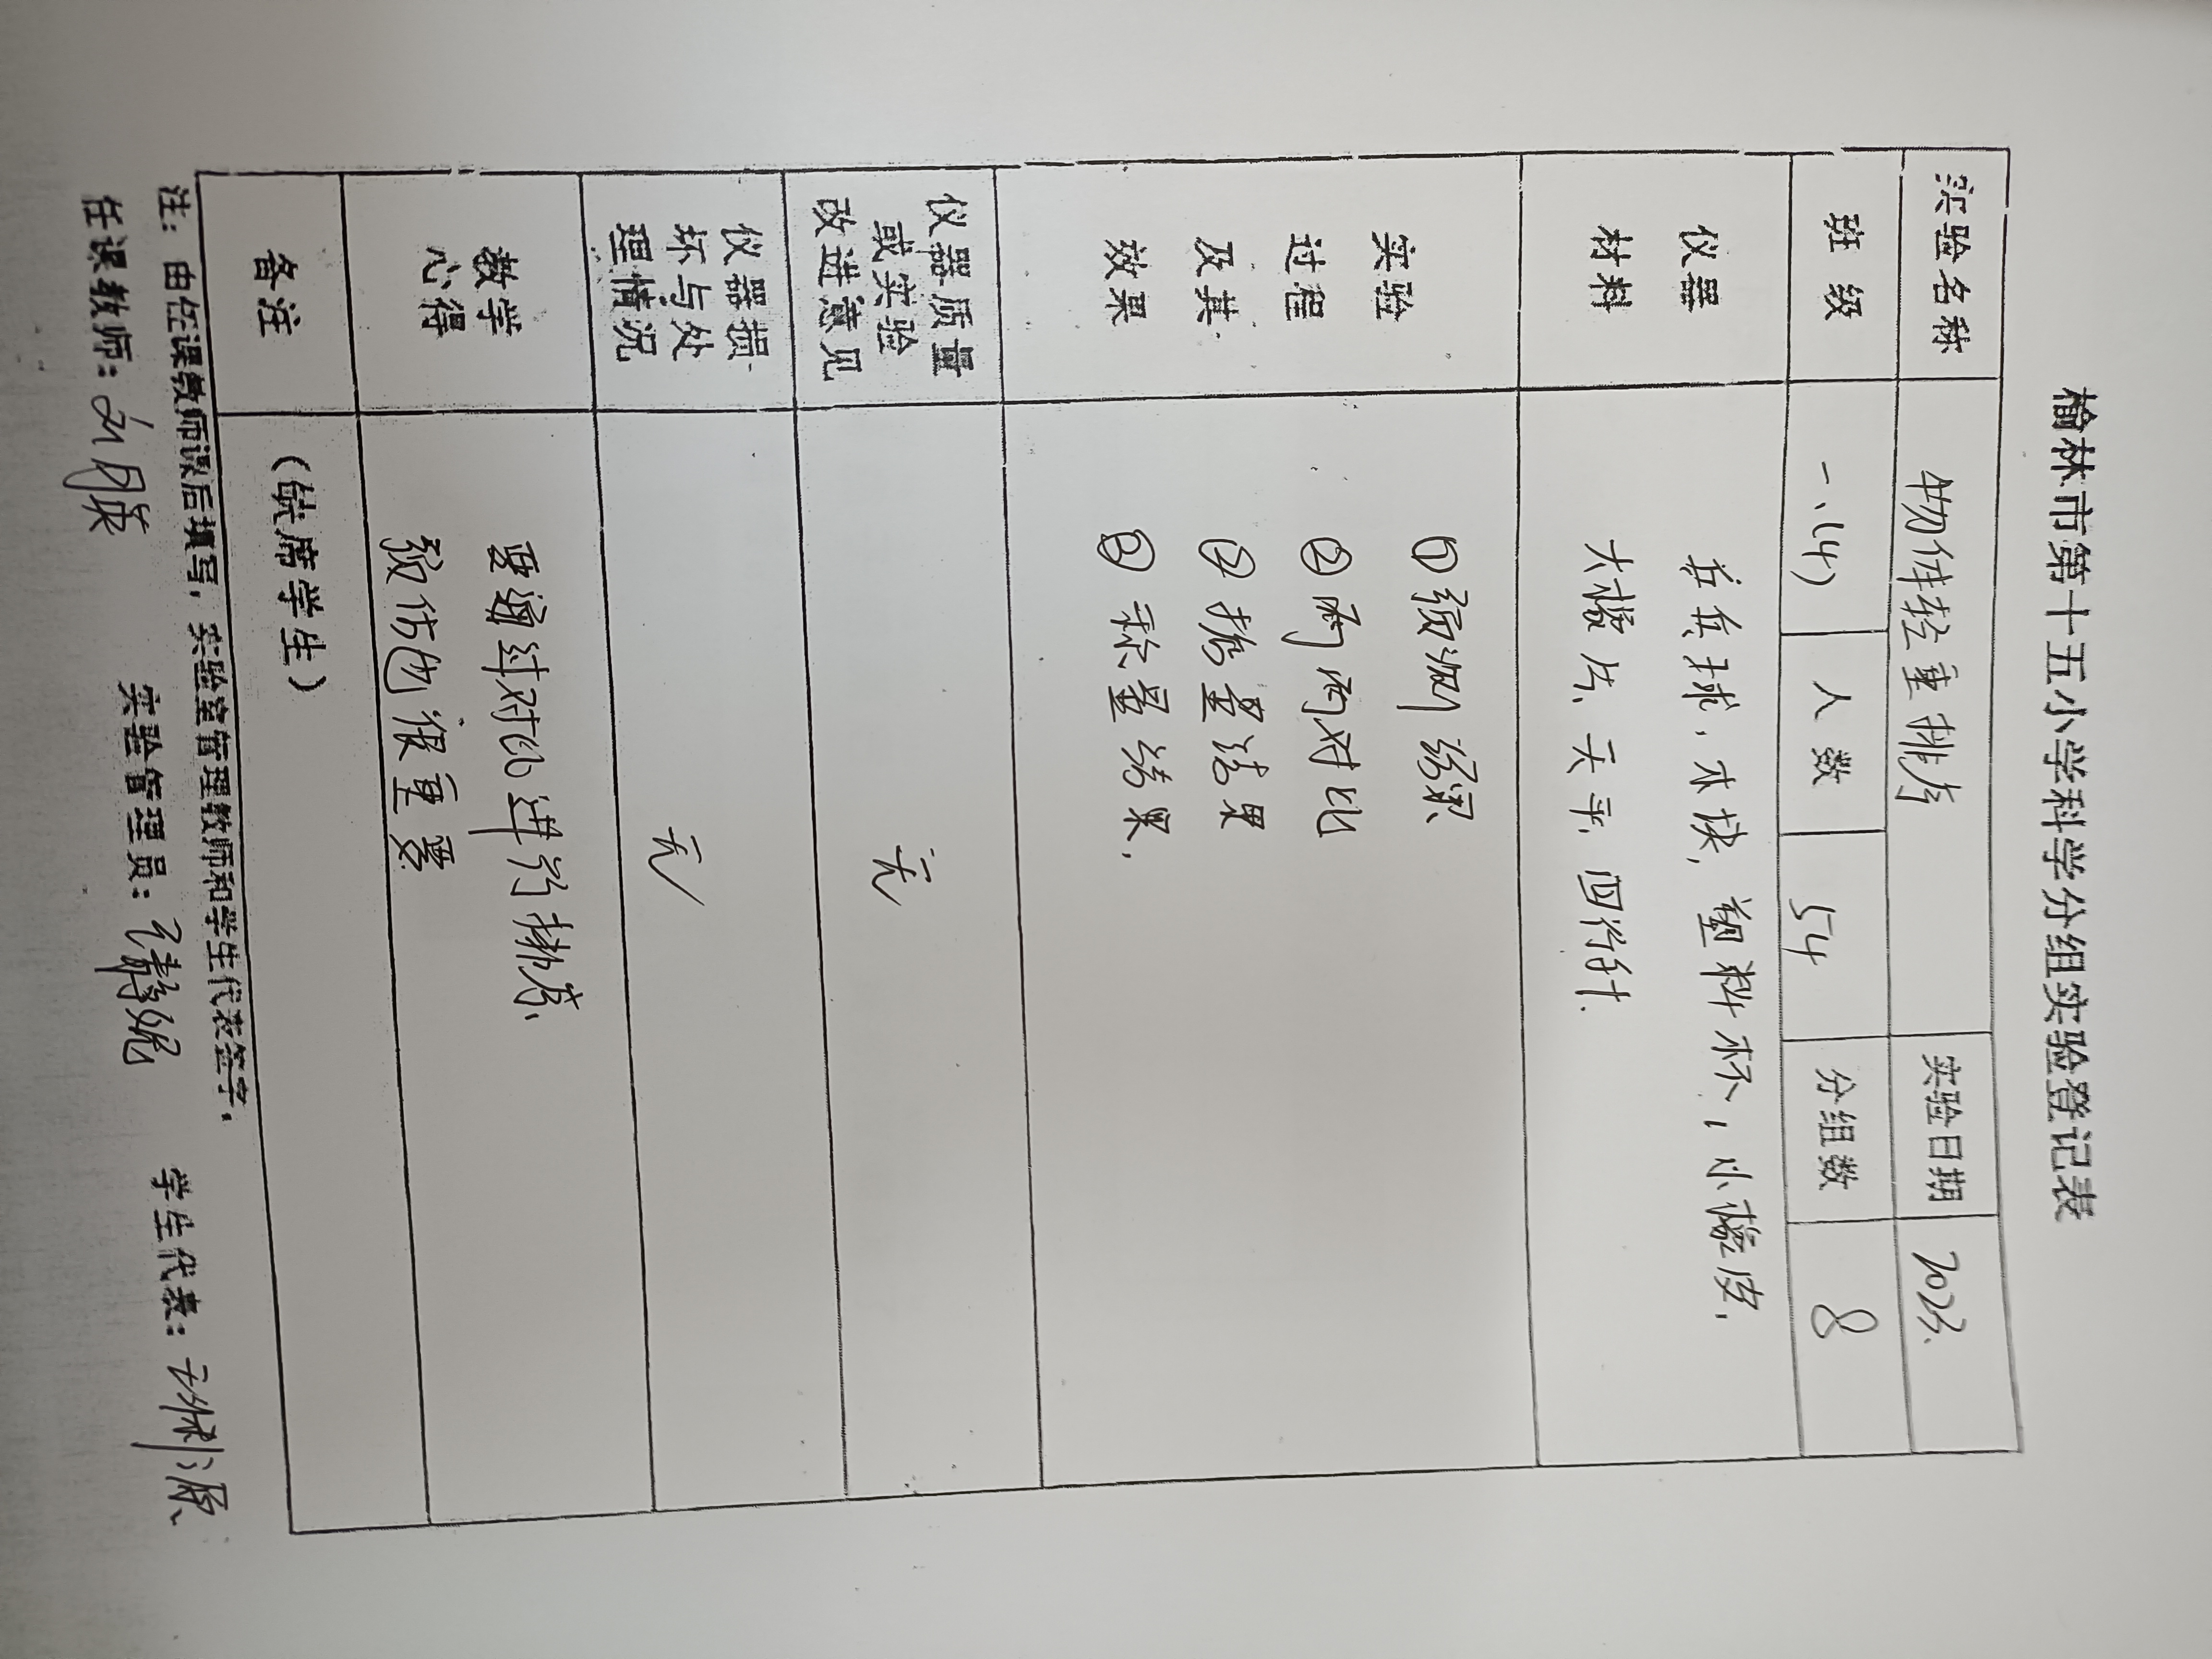 榆林市第十五小学科学分组实验登记表
实验名称 物体轻重排序 实验日期 2023.
班级 一、(4) 人数 54 分组数 8
仪器材料 乒乓球，木块，塑料杯，小橡皮，
大橡皮，天平，回形针.
实验过程及其效果 ①预测结果
②两两对比
②掂量结果
③称量结果，
仪器质量或实验改进意见 无
仪器损坏与处理情况 无
教学心得 要通过对比进行排序，
预估也很重要
备注 (缺席学生)
注：由任课教师课后填写，实验室管理教师和学生代表签字。
任课教师： 实验管理员： 学生代表：